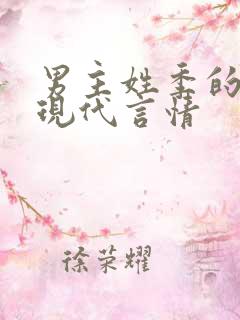 男主姓季的
現代言情
徐荣耀